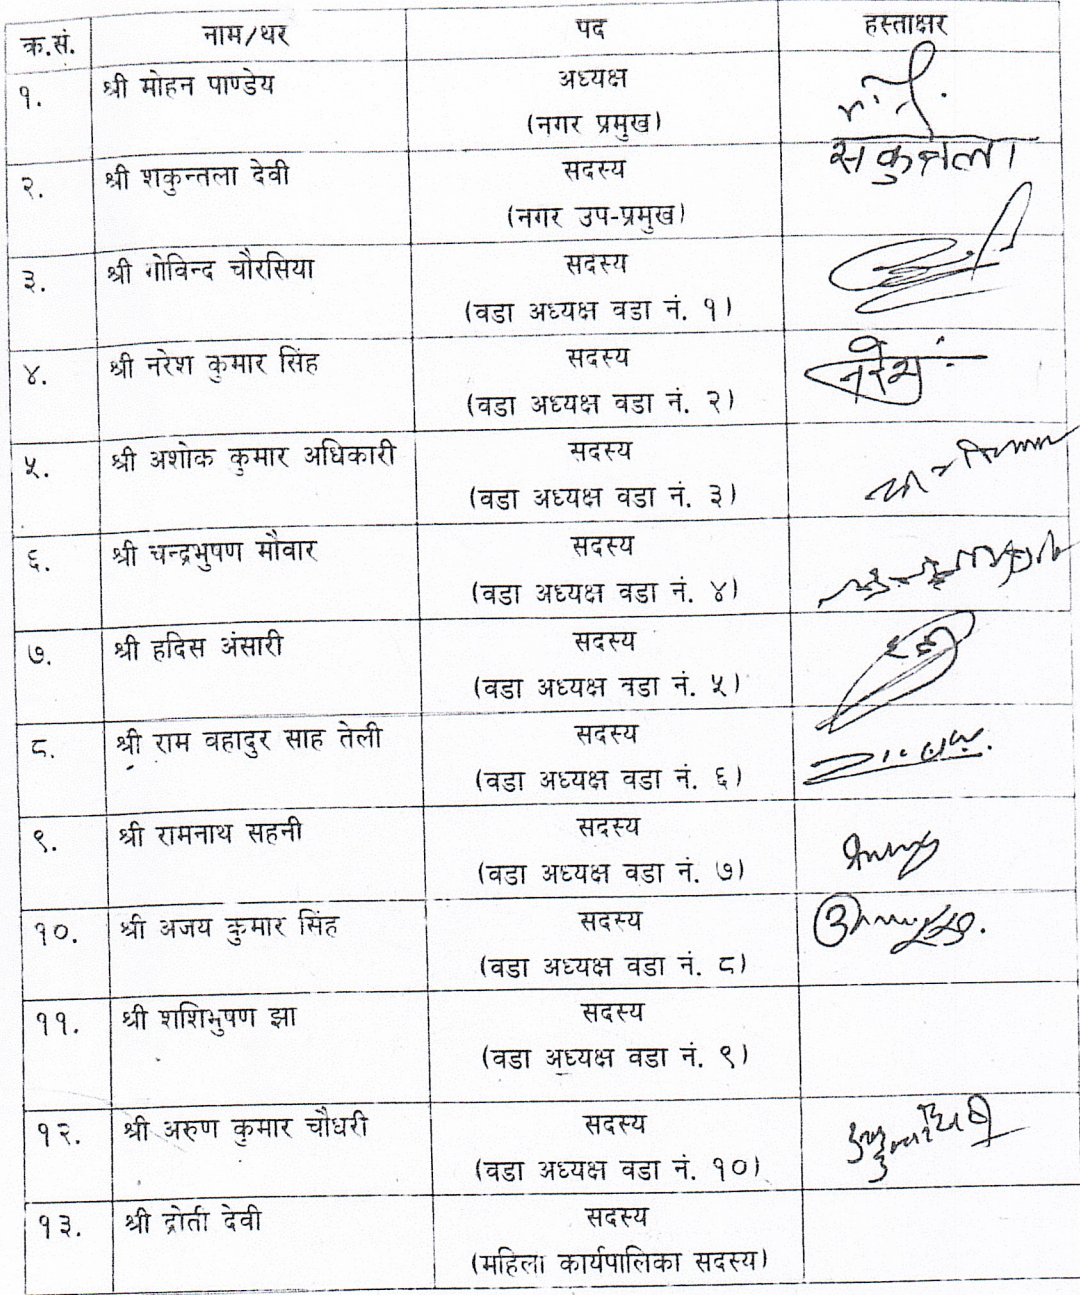 क्र.सं. नाम/थर पद हस्ताक्षर
१. श्री मोहन पाण्डेय अध्यक्ष
(नगर प्रमुख)
२. श्री शकुन्तला देवी सदस्य सकुन्तला
(नगर उप-प्रमुख)
३. श्री गोविन्द चौरसिया सदस्य
(वडा अध्यक्ष वडा नं. १)
४. श्री नरेश कुमार सिंह सदस्य नरेश
(वडा अध्यक्ष वडा नं. २)
५. श्री अशोक कुमार अधिकारी सदस्य
(वडा अध्यक्ष वडा नं. ३)
६. श्री चन्द्रभुषण मौवार सदस्य
(वडा अध्यक्ष वडा नं. ४)
७. श्री हदिस अंसारी सदस्य
(वडा अध्यक्ष वडा नं. ५)
८. श्री राम वहादुर साह तेली सदस्य
(वडा अध्यक्ष वडा नं. ६)
९. श्री रामनाथ सहनी सदस्य
(वडा अध्यक्ष वडा नं. ७)
१०. श्री अजय कुमार सिंह सदस्य
(वडा अध्यक्ष वडा नं. ८)
११. श्री शशिभुषण झा सदस्य
(वडा अध्यक्ष वडा नं. ९)
१२. श्री अरुण कुमार चौधरी सदस्य
(वडा अध्यक्ष वडा नं. १०)
१३. श्री द्रोती देवी सदस्य
(महिला कार्यपालिका सदस्य)